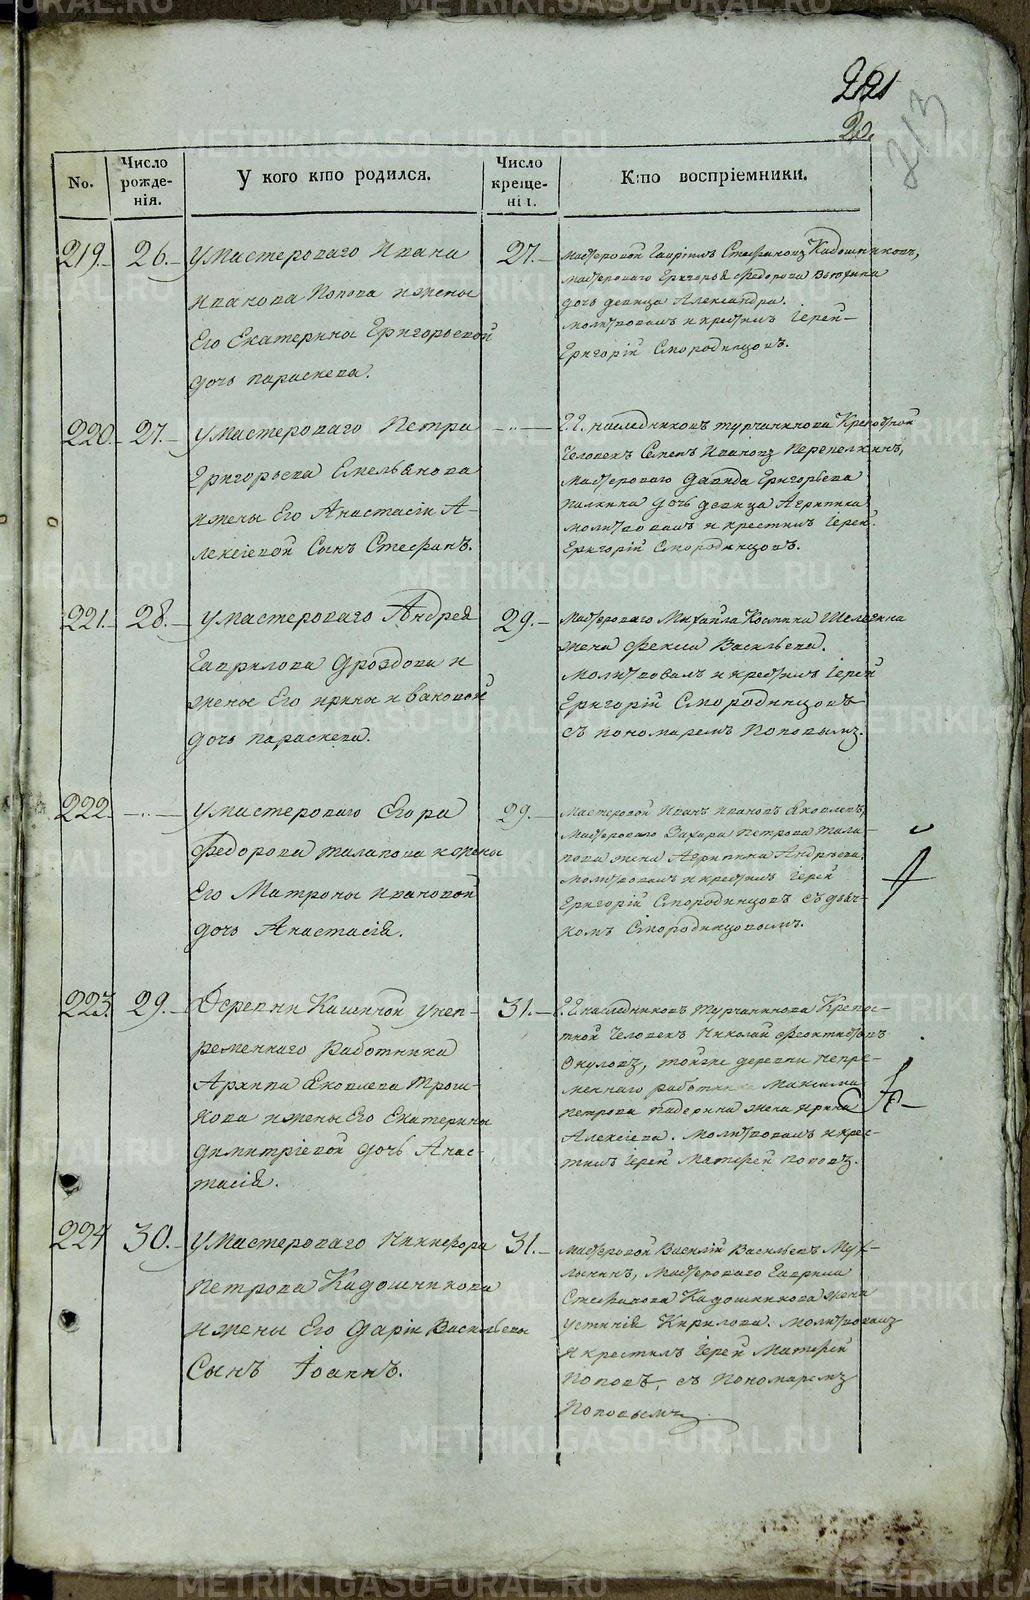 221
20.
213
No.
Число рожде-нія.
У кого кто родился.
Число креще-нія.
Кто воспріемники.
219. 26. У Мастероваго Ивана
Иванова Попова и жены
Его Екатерины Григорьевой
дочь параскева.
27. Мастеровой Гавріилъ Стефановъ Кадошниковъ,
мастероваго Григорья Федорова
дочь девица Александра.
молитвовалъ и крестилъ Іерей
Григорій Смородинцовъ.
220. 27. У Мастероваго Петра
Григорьева Емельянова
и жены Его Анастасіи А-
лексіевой Сынъ Стефанъ.
— " — Г.Г. наследниковъ турчанинова Крепостной
Человекъ Семенъ Ивановъ Перепелкинъ,
Мастероваго давида Григорьева
дочь девица Агрипина
молитвовалъ и крестилъ Іерей
Григорій Смородинцовъ.
221. 28. У мастероваго Андрея
Гаврилова Дроздова и
жены Его ирины ивановой
дочь параскева.
29. Мастероваго Михайла Косьмина
жена Фекла Васильева.
Молитвовалъ и крестилъ Іерей
Григорій Смородинцовъ
съ пономаремъ Поповымъ.
222. — " — У мастероваго Егора
Федорова талапова и жены
Его Матроны ивановой
дочь Анастасія.
29. Мастеровой Иванъ Ивановъ Яковлевъ,
Мастероваго Захара петрова тала-
пова жена Агрипина Андрѣева.
молитвовалъ и крестилъ Іерей
Григорій Смородинцовъ съ дьяч-
комъ Смородинцовымъ.
223. 29. Деревни Кашиной у неп-
ременнаго работника
Архипа Яковлева
и жены Его Екатерины
димитріевой дочь Анас-
тасія.
31. Г.Г. наследниковъ Турчанинова Крепос-
тной Человекъ Николай Феоктистовъ
Окуловъ, тойже деревни непре-
меннаго работника Максима
петрова падерина жена ирина
Алексіева. молитвовалъ и крес-
тилъ Іерей Матфей поповъ.
224 30. У Мастероваго Никифора
петрова Кадошникова
и жены Его дарьи Васильевы
Сынъ Іоаннъ.
31. мастеровой Василій Васильевъ
Мастероваго Гаврила
Стефанова Кадошникова жена
устинія Кирилова. молитвовалъ
и крестилъ Іерей Матфей
Поповъ, съ Пономаремъ
Поповымъ.
METRIKI.GASO-URAL.RU